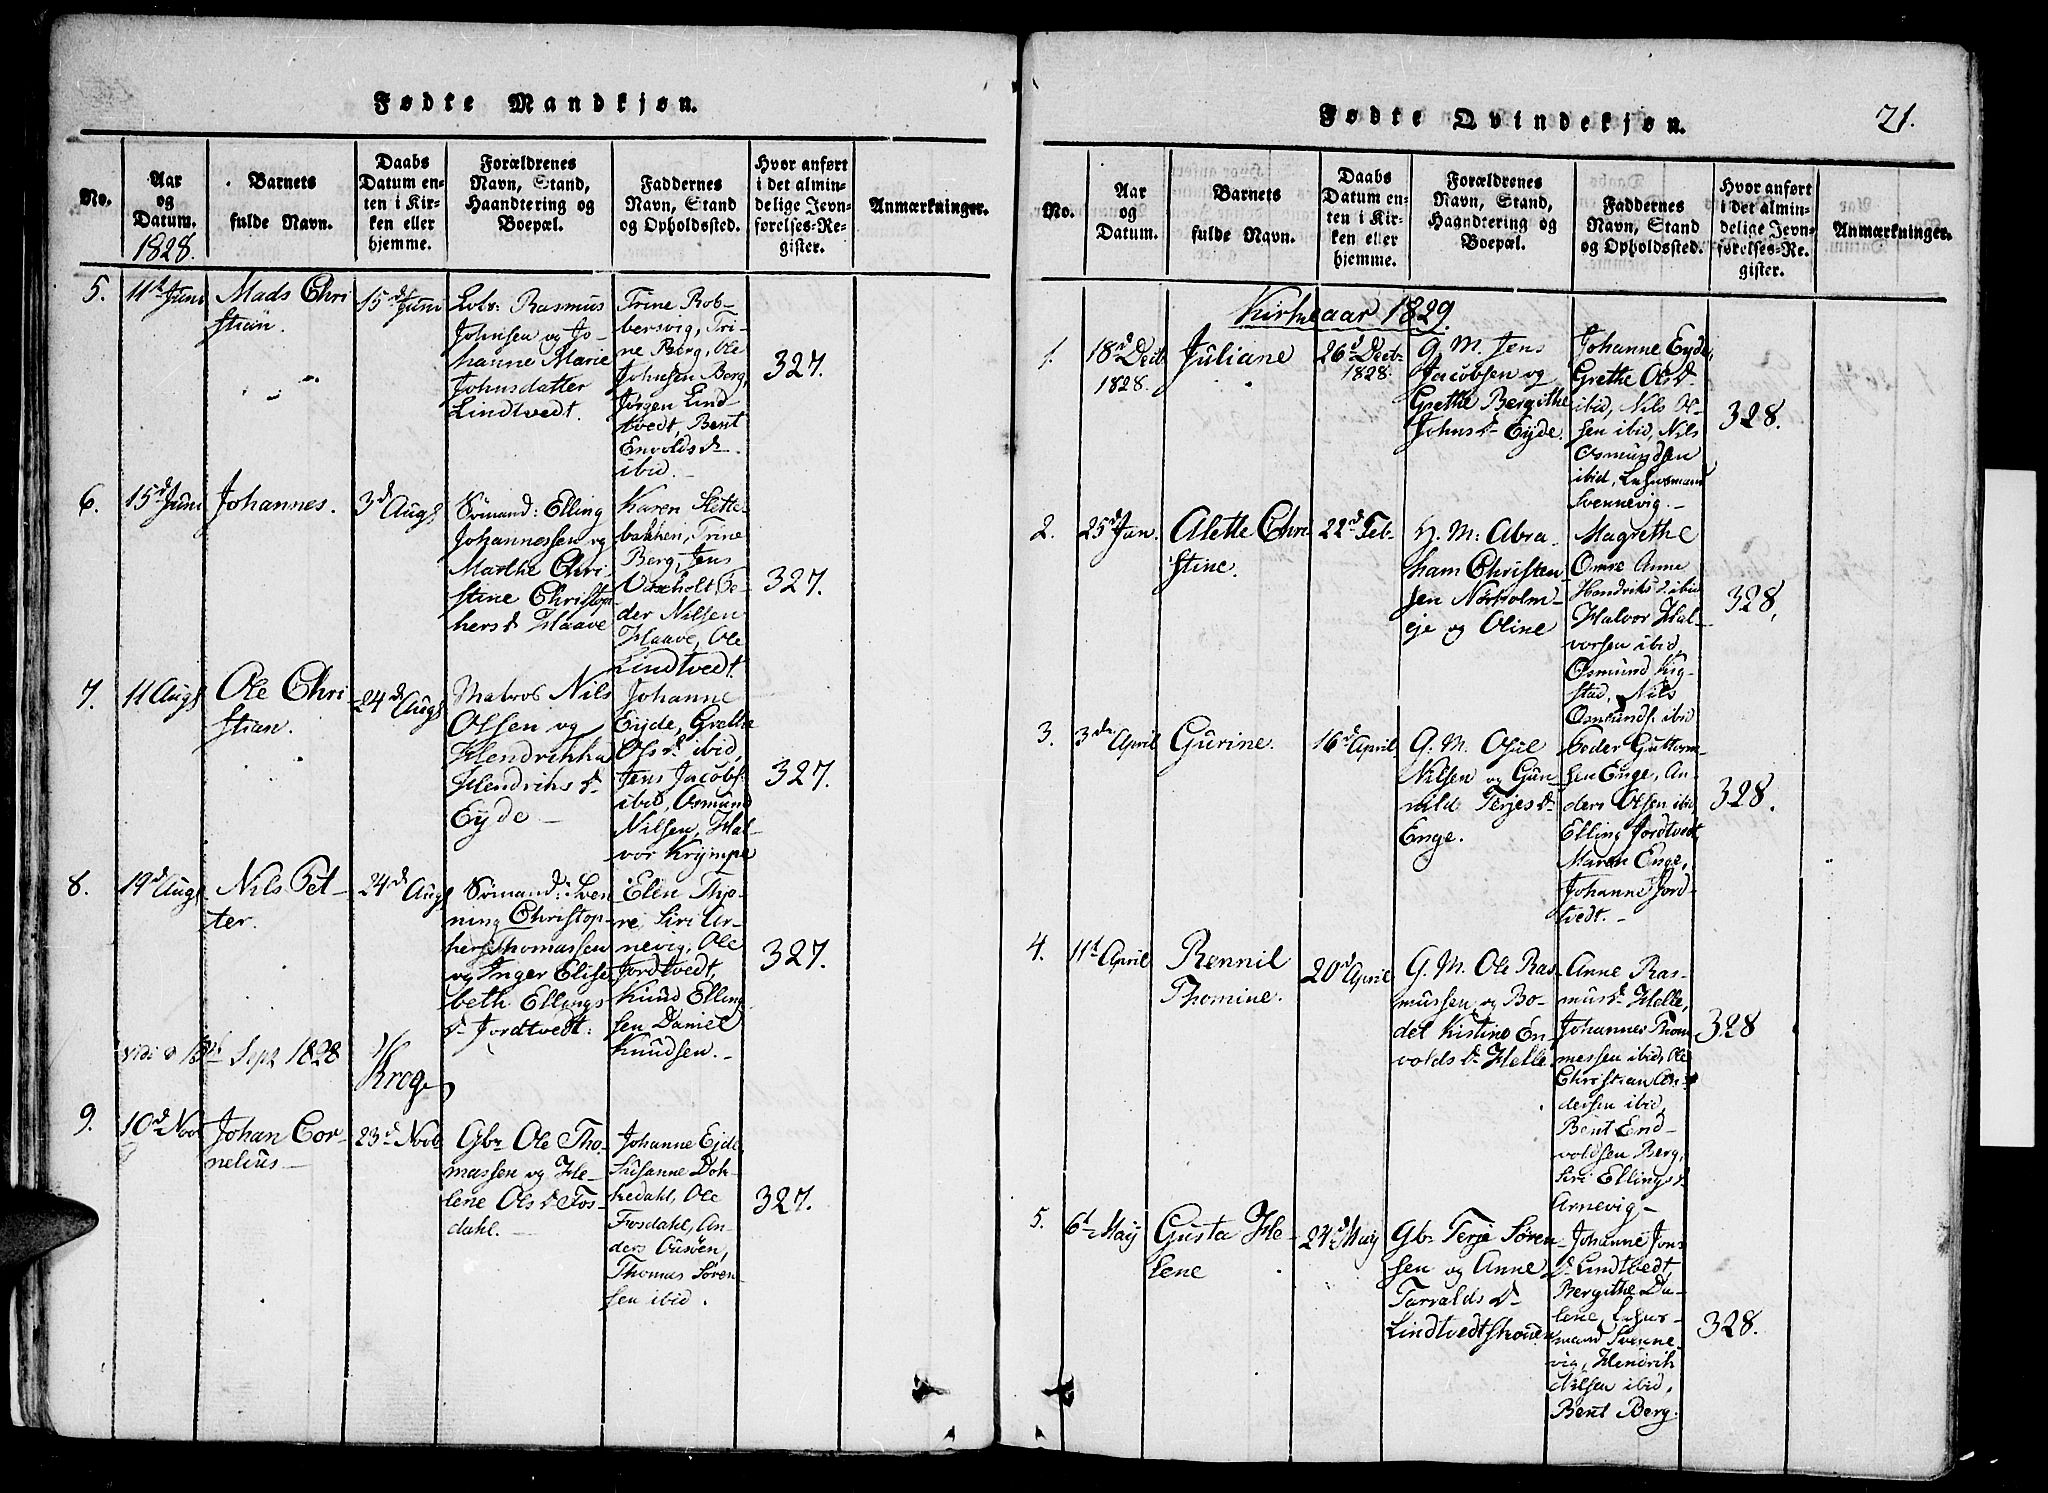 Fødte Mandkjøn.
No.
Aar
og
Datum.
1828.
Barnets
fulde Navn.
Daabs
Datum en-
ten i Kir-
ken eller
hjemme.
Forældrenes
Navn, Stand,
Haandtering og
Boepæl.
Faddernes
Navn, Stand
og Opholdssted.
Hvor anført
i det almin-
delige Jevn-
førelses-Re-
gister.
Anmærkninger.
5.
11t Juni
Mads Chri
stian.
15d Juni
Rasmus
Johnsen og Jo-
hanne Marie
Johnsdatter
Lindtvedt.
Trine Rob-
bersvig, Tri-
ne Berg, Ole
Johnsen Berg,
Jørgen Lind
tvedt, Bent
Envolds d
ibid.
327.
6.
15d Juni
Johannes.
3d Augs
Sømand: Elling
Johannessen og
Marthe Chri-
stine Christop
hers d Haave
Karen Slette-
bakken, Trine
Berg, Jens
Vaxholt Pe-
der Nilsen
Haave, Ole
Lindtvedt
327.
7.
11 Augs
Ole Chri
stian.
24d Augs
Matros Nils
Olsen og
Hendrikka
Hendriks d
Eyde
Johanne
Eyde, Grethe
Ols d ibid,
Jens Jacobs.
ibid, Osmund
Nilsen, Hal-
vor Krympe
327.
8.
19d Augs
Nils Pet-
ter.
24d Augs
Sømand: Sven
ning Christop-
hersThomassen
og Inger Elise
beth Ellings
d Jordtvedt:
Elen Thjo-
re, Siri Ar-
nevig, Ole
Jordtvedt,
Knud Elling
sen Daniel
Knudsen.
327.
Sept 1828
Krog
9.
10d Nov
Johan Cor-
nelius
23d Novb
Gbr Ole Tho-
massen og He-
lene Ols d Fos-
dahl.
Johanne Ejde
Susanne Dok-
kedahl, Ole
Fosdahl, An-
ders Ousøen,
Thomas Søren-
sen ibid.
327.
Fødte Qvindekjøn.
21.
No.
Aar
og
Datum.
Barnets
fulde Navn.
Daabs
Datum en-
ten i Kir-
ken eller
hjemme.
Forældrenes
Navn, Stand,
Haandtering og
Boepæl.
Faddernes
Navn, Stand
og Opholdssted.
Hvor anført
i det almin-
delige Jevn-
førelses-Re-
gister.
Anmærkninger.
Kirkeaar 1829.
1.
18d Decb
1828.
Juliane
26d Decb
1828.
G. M. Jens
Jacobsen og
Grethe Bergithe
Johns d Eyde.
Johanne Eyde,
Grethe Ols d
ibid, Nils Ol-
sen ibid, Nils
Osmundsen
ibid, Lehnsmand
Svennevig.
328.
2.
25d Jan.
Alette Chri
stine.
22d Feb
G. M: Abra-
ham Christen
sen Narholm-
eje og Oline
Magrethe
Omre Anne
Hendriks d ibid
Halvor Hal-
vorsen ibid,
Osmund Rig-
stad, Nils
Osmunds. ibid
328.
3.
3die April
Gurine.
16d April
G. M. Osul
Nilsen og Gun
nild Terjes d
Enge.
Peder Guttorm
sen Enge, An-
ders Olsen ibid
Elling Jordtvedt,
Maren Enge,
Johanne Jord-
tvedt.
328.
4.
11t April
Rennil
Thomine.
20d April
G. M. Ole Ras
mussen og Bo-
del Kistine En-
volds d Helle
Anne Ras-
mus d Helle,
Johannes Thom
messen ibid, Ole
Christian An-
dersen ibid,
Bent End-
voldsen Berg,
Siri Ellings d
Arnevig
328
5.
6t May
Gusta He-
lene
24d May
Gbr Terje Søren
sen og Anne
Tarvalds d
Lindtvedtskoven
Johanne Jons
d Lindtvedt,
Bergithe Da-
lene, Lehns-
mand Svenne
vig, Hendrik
Nilsen ibid,
Bent Berg.
328.